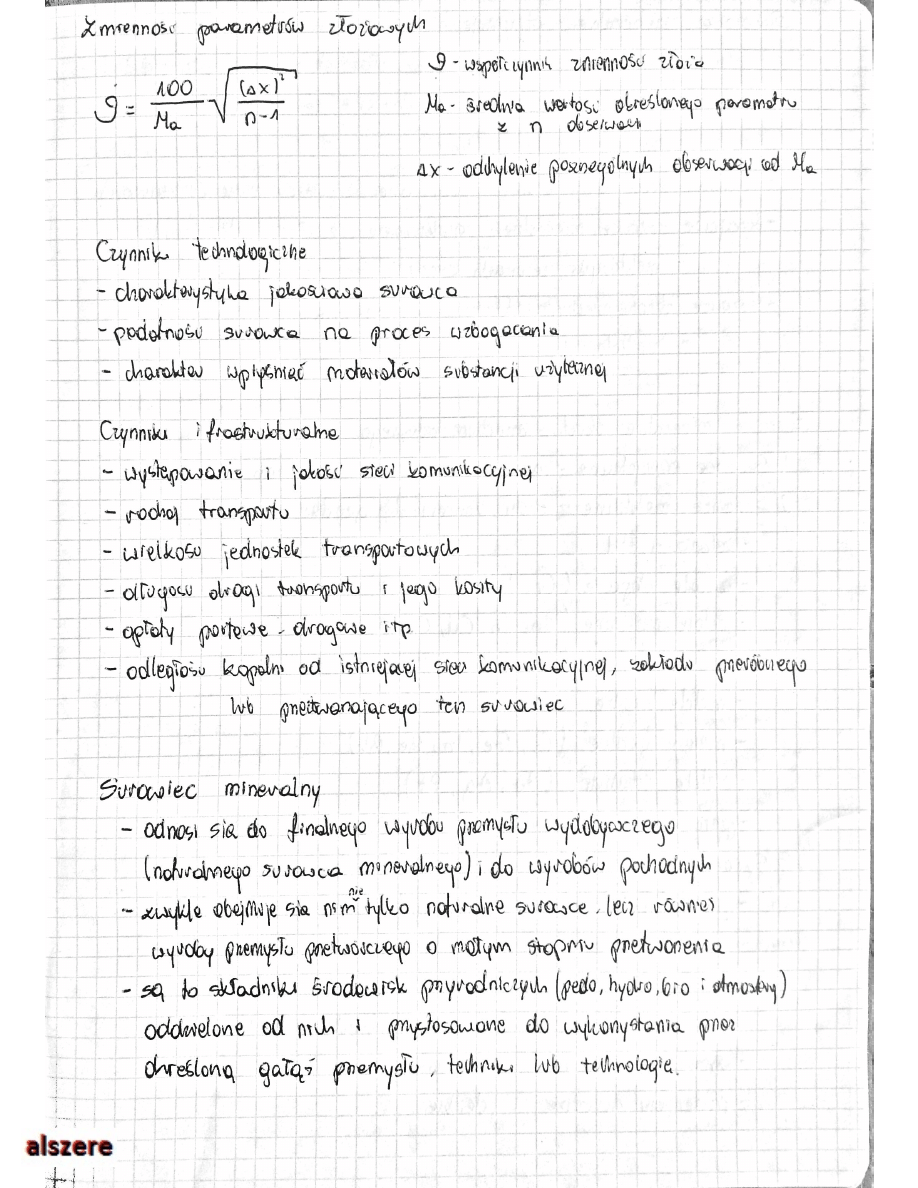 Zmienność parametrów złożowych
ϑ = 100/Ma √((Δx)²/(n-1))
ϑ - współczynnik zmienność złoża
Ma - średnia wartość określonego parametru
z n obserwacji
Δx - odchylenie poszczególnych obserwacji od Ma
Czynniki technologiczne
- charakterystyka jakościowa surowca
- podatność surowca na proces wzbogacania
- charakter materiałów substancji użytecznej
Czynniki ifrastrukturalne
- występowanie i jakość sieci komunikacyjnej
- rodzaj transportu
- wielkość jednostek transportowych
- długość drogi transportu i jego koszty
- opłaty portowe, drogowe itp
- odległość kopalni od istniejącej sieci komunikacyjnej, zakładu przeróbczego
lub przetwarzającego ten surowiec
Surowiec mineralny
- odnosi się do finalnego wyrobu przemysłu wydobywczego
(naturalnego surowca mineralnego) i do wyrobów pochodnych
- zwykle obejmuje się nim nie tylko naturalne surowce, lecz również
wyroby przemysłu przetwórczego o małym stopniu przetworzenia
- są to składniki środowisk przyrodniczych (pedo, hydro, bio i atmosfery)
oddzielone od nich i przystosowane do wykorzystania przez
określoną gałąź przemysłu, techniki lub technologie.
alszere